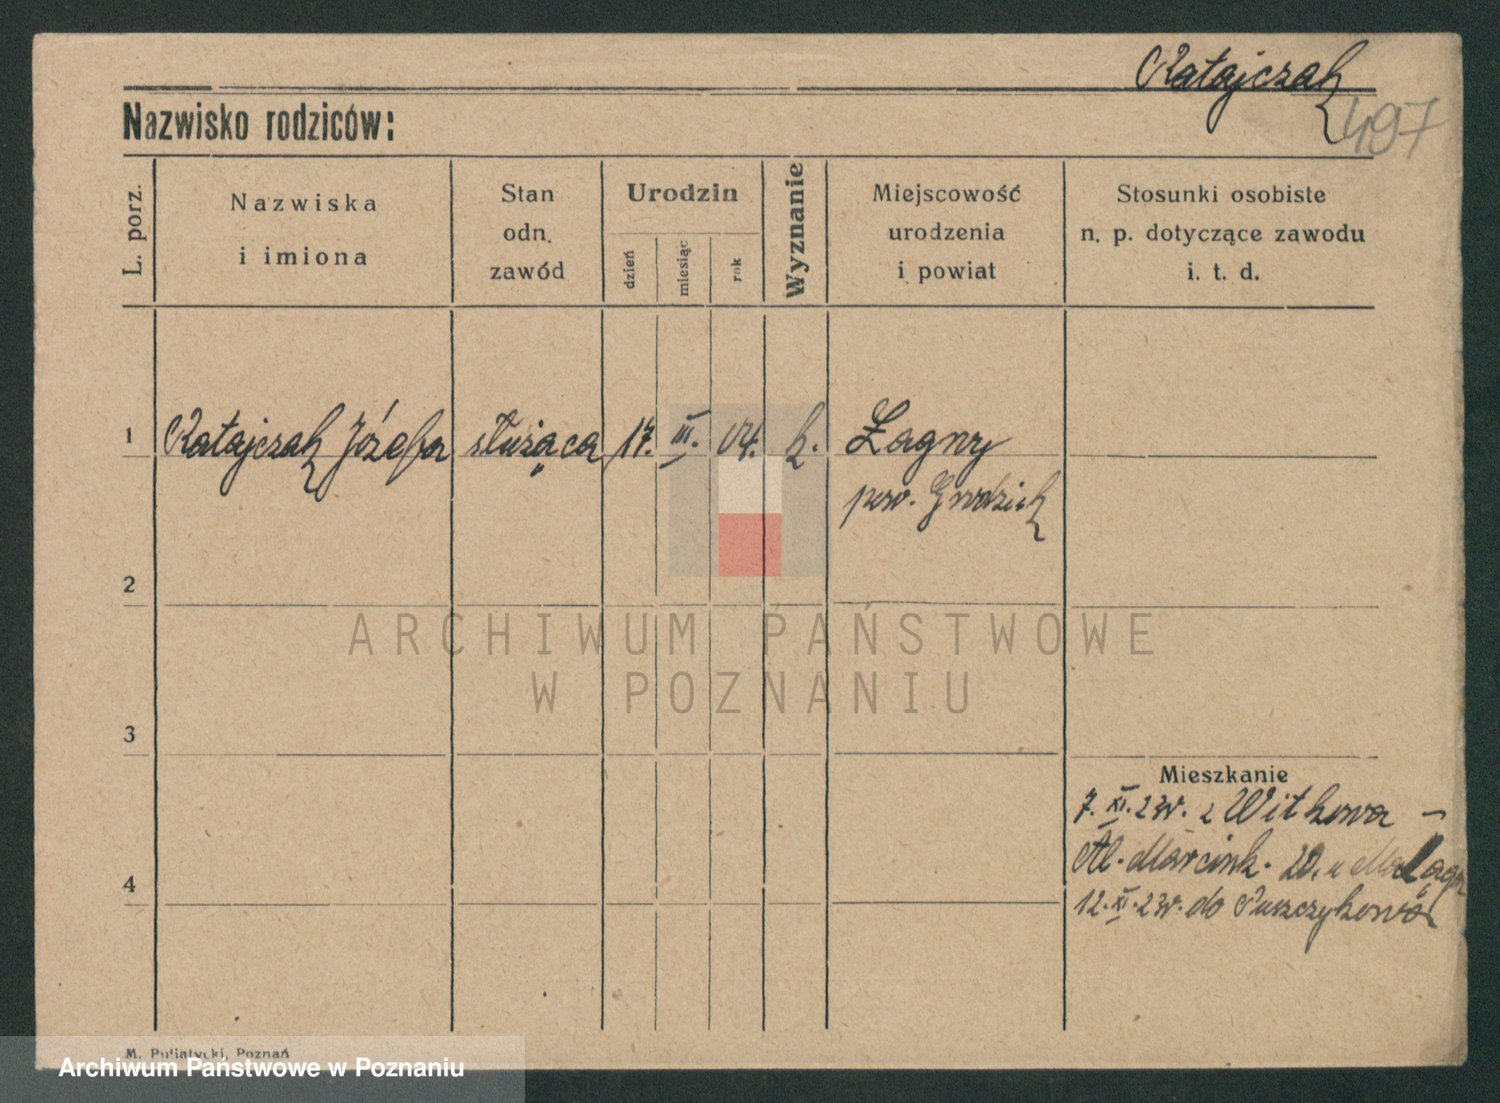 Ratajczak
497
Nazwisko rodziców:
L. porz.
Nazwiska
i imiona
Stan
odn.
zawód
Urodzin
dzień
miesiąc
rok
Wyznanie
Miejscowość
urodzenia
i powiat
Stosunki osobiste
n. p. dotyczące zawodu
i. t. d.
1 Ratajczak Józefa służąca 17. III. 04. k. Łagny
pow. Grodzisk
2
3
4
ARCHIWUM PAŃSTWOWE
W POZNANIU
Mieszkanie
7. XI. 23r. z Witkowa –
Al. Marcink. 20. u
12. XI. 23r. do Puszczykowa
M. Puliatycki, Poznań
Archiwum Państwowe w Poznaniu